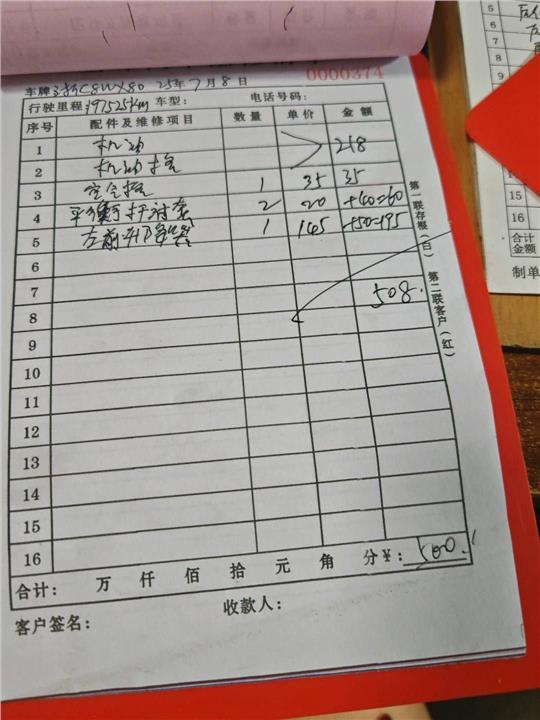 0000374
车牌 C8WX80 25年7月8日
行驶里程 197525km 车型： 电话号码：
序号 配件及维修项目 数量 单价 金额
1 机油 218
2 机油格
3 空气格 1 35 35
4 平衡杆衬套 2 20 +40=60
5 左前 1 145 +50=195
6
7 508.
8
9
10
11
12
13
14
15
16
合计： 万 仟 佰 拾 元 角 分 ¥： 500.
客户签名： 收款人：
第一联存根（白） 第二联客户（红）
5
6
7
8
15
16
合计
金额
制单